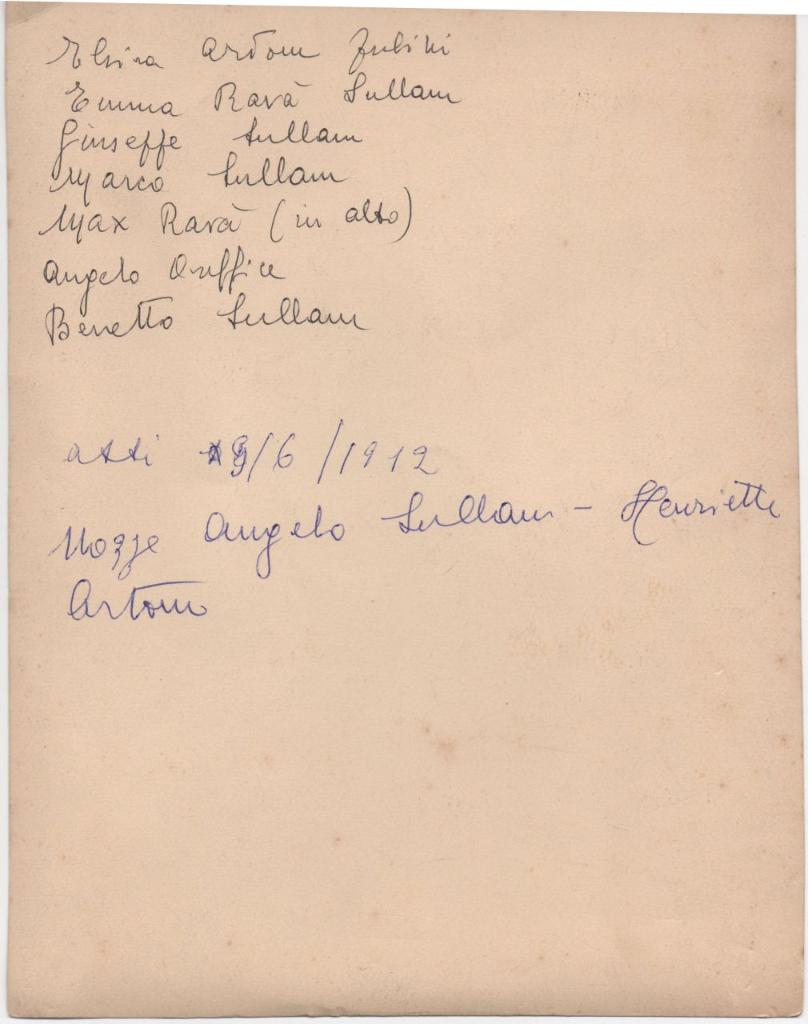 Elvira Ardom Fubini
Emma Ravà Sullam
Giuseppe Sullam
Marco Sullam
Max Ravà (in alto)
Angelo Oreffice
Benetto Sullam
asti 9/6/1912
Nozze Angelo Sullam – Henriette
Artom